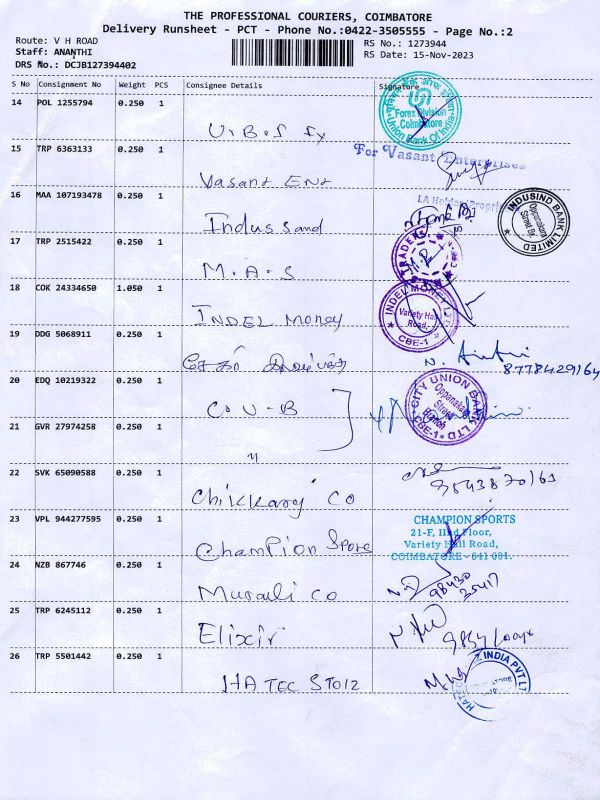 THE PROFESSIONAL COURIERS, COIMBATORE
Delivery Runsheet - PCT - Phone No.:0422-3505555 - Page No.:2
Route: V H ROAD
RS No.: 1273944
Staff: ANANTHI
RS Date: 15-Nov-2023
DRS No.: DCJB127394402
S No Consignment No Weight PCS Consignee Details Signature
14 POL 1255794 0.250 1
Union Bank Of India
Forex Division
Coimbatore
U.B.I
15 TRP 6363133 0.250 1
For Vasant Enterprises
Vasant Ent
16 MAA 107193478 0.250 1
INDUSIND BANK LIMITED
Oppanakara Street Br.
Indus sand
17 TRP 2515422 0.250 1
TRADERS
M.A.S
18 COK 24334650 1.050 1
INDEL MONEY LTD
Variety Hall Road,
CBE-1
INDEL Money
19 DDG 5068911 0.250 1
8778429164
20 EDQ 10219322 0.250 1
CITY UNION BANK LTD
Oppanakara Street Branch
CBE-1
C.U.B
21 GVR 27974258 0.250 1
"
22 SVK 65090588 0.250 1
Chikkanj Co
23 VPL 944277595 0.250 1
CHAMPION SPORTS
21-F, IInd Floor,
Variety Hall Road,
COIMBATORE - 641 001.
Champion Spore
24 NZB 867746 0.250 1
98430
25417
Murali Co
25 TRP 6245112 0.250 1
Elixir
26 TRP 5501442 0.250 1
INDIA PVT LT
HATEC STO12